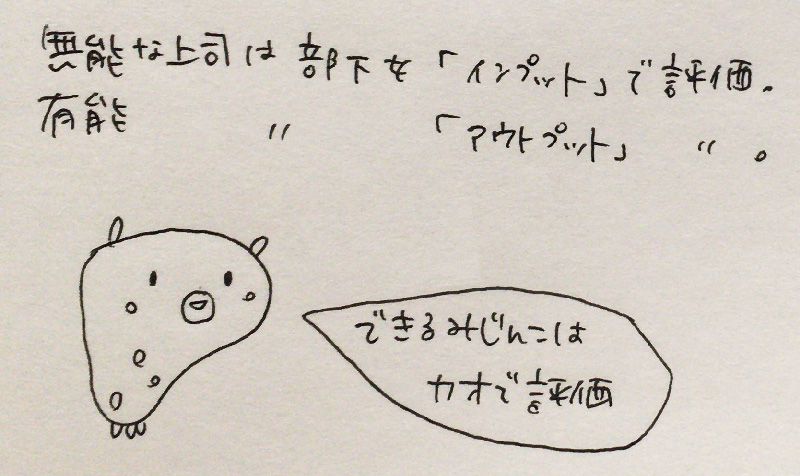 無能な上司は部下を「インプット」で評価。
有能 〃 「アウトプット」 〃 。
できるみじんこは
カオで評価